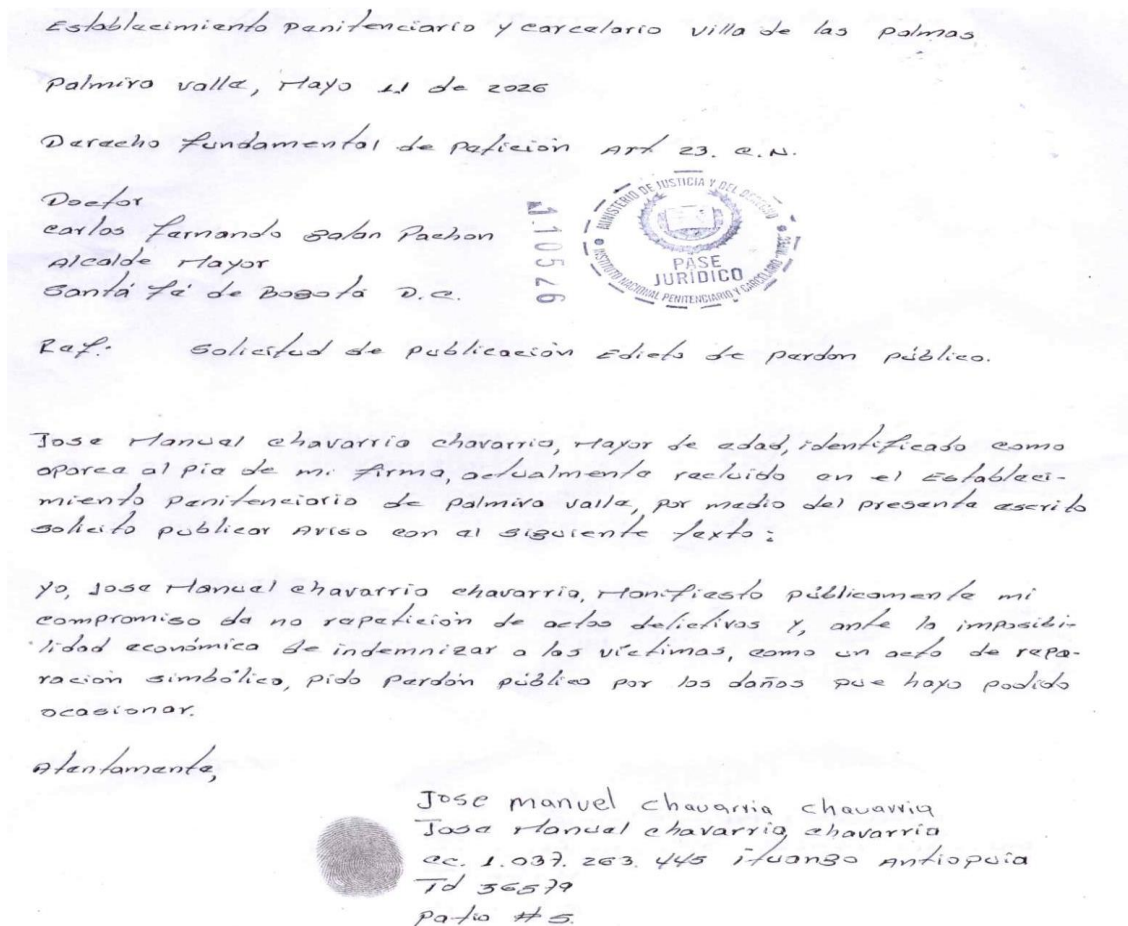 Establecimiento penitenciario y carcelario villa de las palmas
Palmira valle, Mayo 11 de 2026
Derecho fundamental de petición Art 23. C.N.
Doctor
Carlos fernando Galan Pachon
Alcalde Mayor
Santá fé de Bogotá D.C.
110526
MINISTERIO DE JUSTICIA Y DEL DERECHO
PASE
JURÍDICO
INSTITUTO NACIONAL PENITENCIARIO Y CARCELARIO "INPEC"
Ref: Solicitud de Publicación Edicto de perdon público.
Jose Manuel chavarria chavarria, Mayor de edad, identificado como
aparece al pie de mi firma, actualmente recluido en el Estableci-
miento penitenciario de palmira valle, por medio del presente escrito
solicito publicar Aviso con el siguiente texto:
yo, Jose Manuel chavarria chavarria, Manifiesto públicamente mi
compromiso de no repetición de actos delictivos y, ante la imposibi-
lidad económica de indemnizar a las víctimas, como un acto de repa-
ración simbólica, pido perdón público por los daños que haya podido
ocasionar.
Atentamente,
Jose manuel chavarria chavarria
Jose Manuel chavarria chavarria
cc. 1.037.263.445 ituango Antioquia
Td 36579
patio #5.